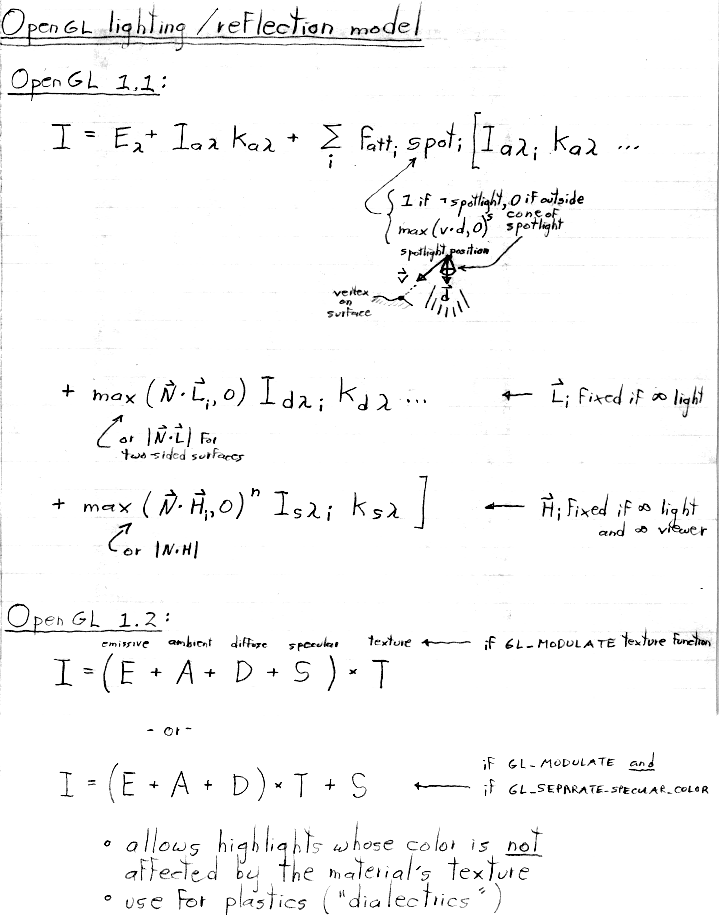 OpenGL lighting/reflection model
OpenGL 1.1:
I = Eλ + Iaλ kaλ + Σi fatti spoti [Iaλi kaλ ...
{ 1 if ¬ spotlight, 0 if outside cone of spotlight
max(v·d,0)^s
spotlight position
v⃗
d⃗
vertex
on
surface
+ max(N⃗·L⃗i,0) Idλi kdλ ... ← L⃗i fixed if ∞ light
or |N⃗·L⃗| for
two-sided surfaces
+ max(N⃗·H⃗i,0)^n Isλi ksλ ] ← H⃗i fixed if ∞ light
and ∞ viewer
or |N·H|
OpenGL 1.2:
emissive ambient diffuse specular texture ← if GL_MODULATE texture function
I = (E + A + D + S) * T
- or -
if GL_MODULATE and
I = (E + A + D) * T + S ← if GL_SEPARATE_SPECULAR_COLOR
• allows highlights whose color is not
affected by the material's texture
• use for plastics ("dialectrics")